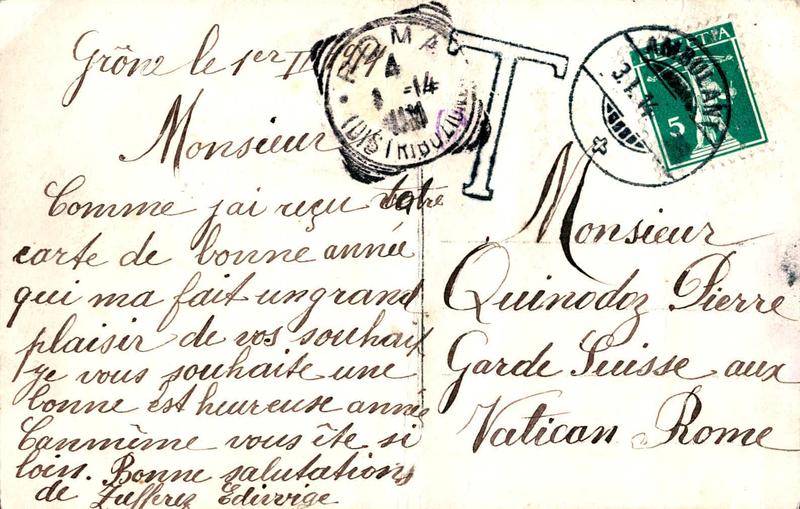 Grône le 1er II 1914
Monsieur
Comme j'ai reçu votre
carte de bonne année
qui ma fait un grand
plaisir de vos souhait
je vous souhaite une
bonne est heureuse année
Canmême vous ête si
loin. Bonne salutation
de Zufferez Edivvige
ROMA
4
1 -14
DISTRIBUZIONE
T
AMBULANT
3.I.14
HELVETIA
5
Monsieur
Quinodoz Pierre
Garde Suisse aux
Vatican Rome